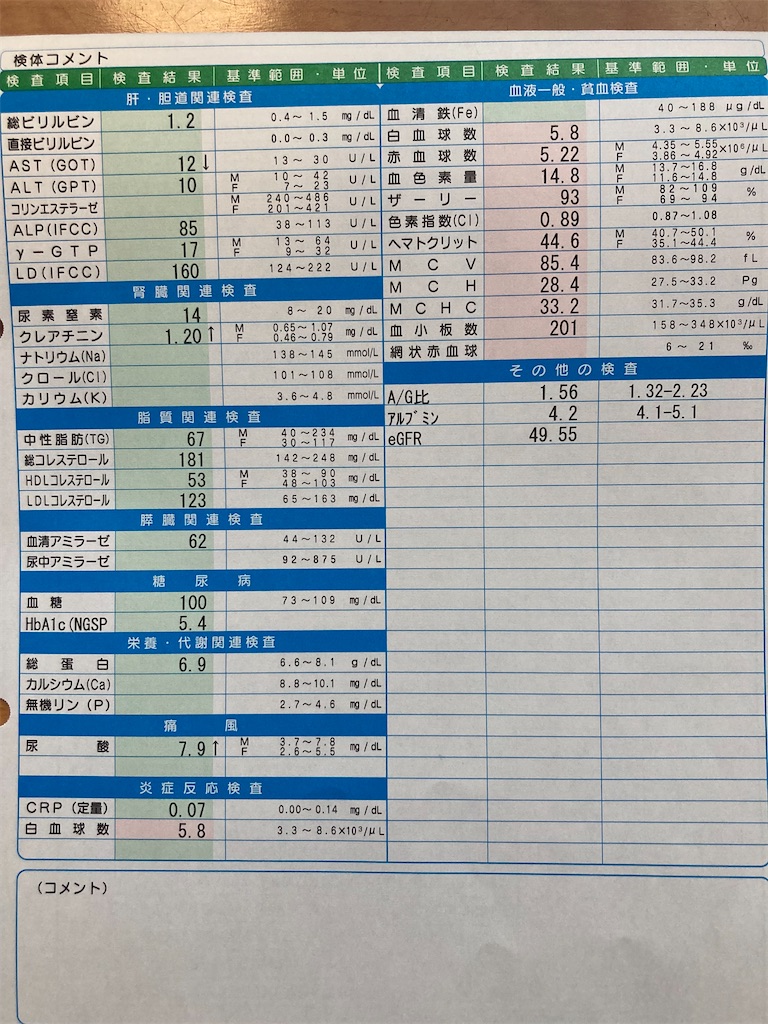 検体コメント
検査項目 検査結果 基準範囲・単位
肝・胆道関連検査
総ビリルビン 1.2 0.4～1.5 mg/dL
直接ビリルビン 0.0～0.3 mg/dL
AST(GOT) 12↓ 13～30 U/L
ALT(GPT) 10 M 10～42 F 7～23 U/L
コリンエステラーゼ M 240～486 F 201～421 U/L
ALP(IFCC) 85 38～113 U/L
γ-GTP 17 M 13～64 F 9～32 U/L
LD(IFCC) 160 124～222 U/L
腎臓関連検査
尿素窒素 14 8～20 mg/dL
クレアチニン 1.20↑ M 0.65～1.07 F 0.46～0.79 mg/dL
ナトリウム(Na) 138～145 mmol/L
クロール(Cl) 101～108 mmol/L
カリウム(K) 3.6～4.8 mmol/L
脂質関連検査
中性脂肪(TG) 67 M 40～234 F 30～117 mg/dL
総コレステロール 181 142～248 mg/dL
HDLコレステロール 53 M 38～90 F 48～103 mg/dL
LDLコレステロール 123 65～163 mg/dL
膵臓関連検査
血清アミラーゼ 62 44～132 U/L
尿中アミラーゼ 92～875 U/L
糖尿病
血糖 100 73～109 mg/dL
HbA1c(NGSP 5.4
栄養・代謝関連検査
総蛋白 6.9 6.6～8.1 g/dL
カルシウム(Ca) 8.8～10.1 mg/dL
無機リン(P) 2.7～4.6 mg/dL
痛風
尿酸 7.9↑ M 3.7～7.8 F 2.6～5.5 mg/dL
炎症反応検査
CRP(定量) 0.07 0.00～0.14 mg/dL
白血球数 5.8 3.3～8.6×10³/μL
(コメント)
検査項目 検査結果 基準範囲・単位
血液一般・貧血検査
血清鉄(Fe) 40～188 μg/dL
白血球数 5.8 3.3～8.6×10³/μL
赤血球数 5.22 M 4.35～5.55 F 3.86～4.92 ×10⁶/μL
血色素量 14.8 M 13.7～16.8 F 11.6～14.8 g/dL
ザーリー 93 M 82～109 F 69～94 %
色素指数(CI) 0.89 0.87～1.08
ヘマトクリット 44.6 M 40.7～50.1 F 35.1～44.4 %
MCV 85.4 83.6～98.2 fL
MCH 28.4 27.5～33.2 Pg
MCHC 33.2 31.7～35.3 g/dL
血小板数 201 158～348×10³/μL
網状赤血球 6～21 ‰
その他の検査
A/G比 1.56 1.32-2.23
アルブミン 4.2 4.1-5.1
eGFR 49.55